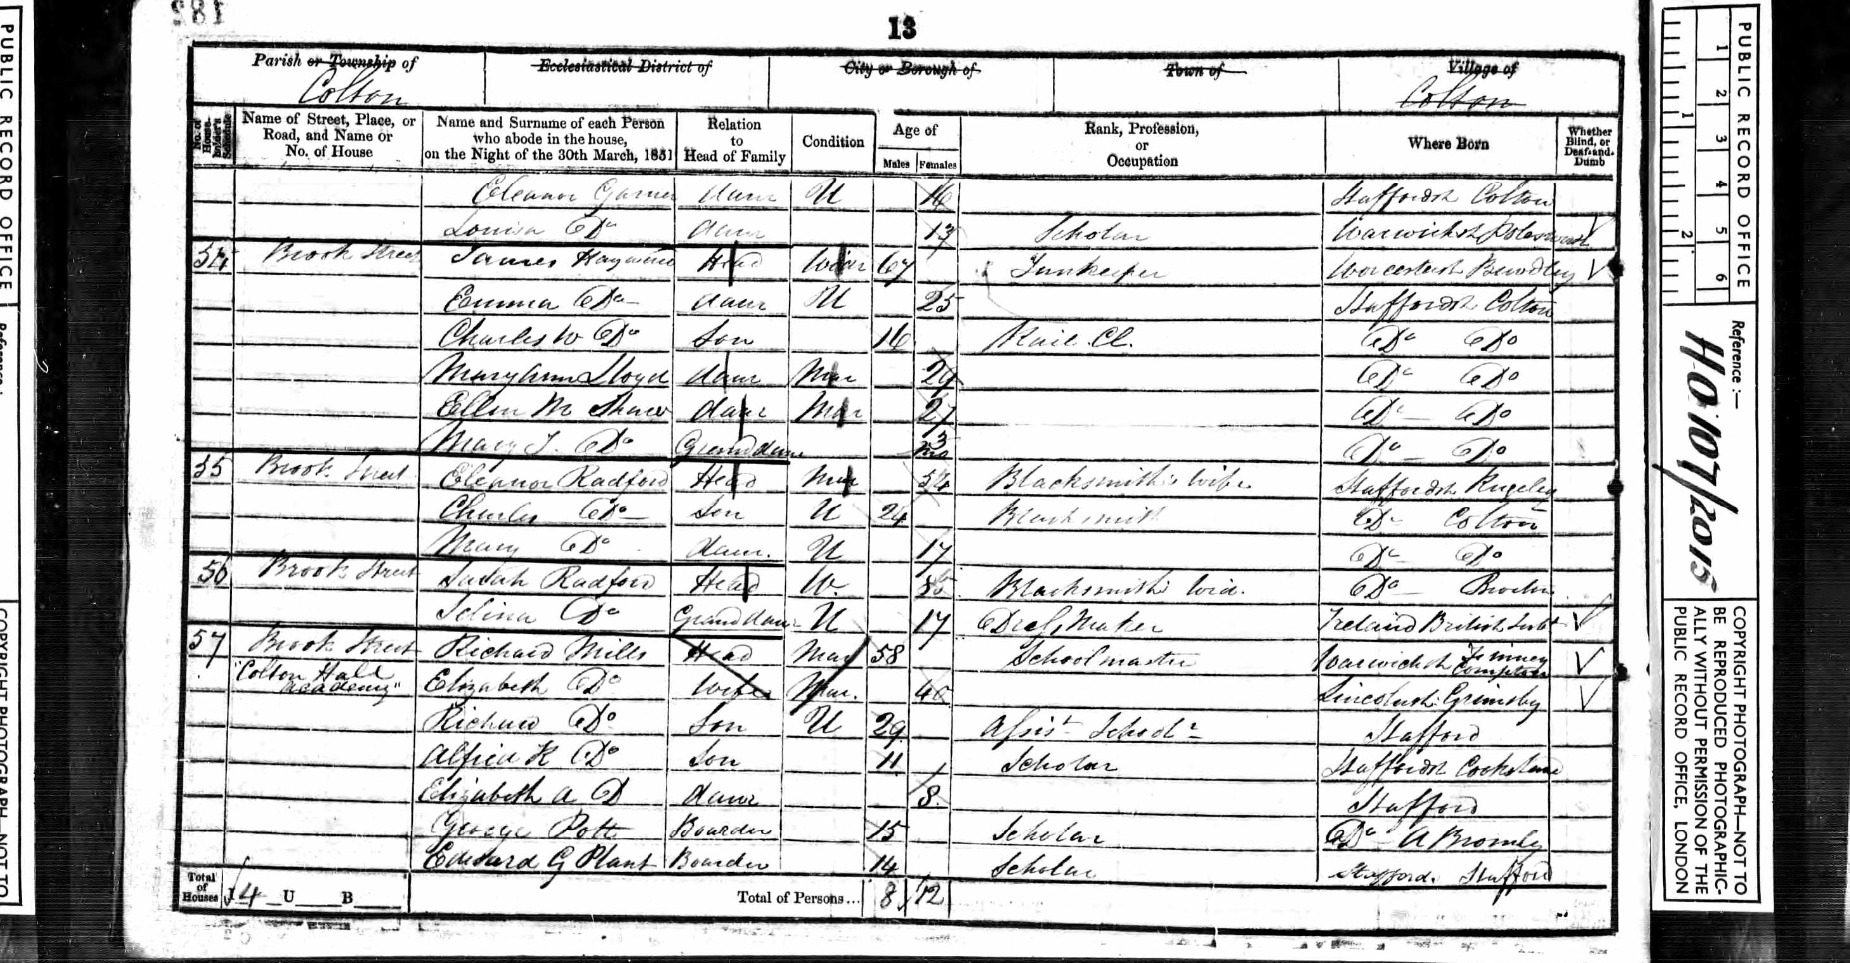 182
13
Parish or Township of
Colton
Ecclesiastical District of
City or Borough of
Town of
Village of
Colton
No. of House-holder's Schedule
Name of Street, Place, or Road, and Name or No. of House
Name and Surname of each Person who abode in the house, on the Night of the 30th March, 1851
Relation to Head of Family
Condition
Age of
Males
Females
Rank, Profession, or Occupation
Where Born
Whether Blind, or Deaf-and-Dumb
Eleanor Garner daur U 16 Staffordsh Colton
Louisa Do daur 13 Scholar Warwicksh
Brook Street James Head 67 Innkeeper Worcestersh Bewdley
Emma Do daur U 25 Staffordsh Colton
Charles W Do Son 16 Do Do
Mary Ann Lloyd daur Mar 29 Do Do
Ellen M Shaw daur Mar 27 Do Do
Mary J. Do Granddaur 3 mo Do Do
35 Brook Street Eleanor Radford Head Mar 54 Blacksmith's Wife Staffordsh Rugeley
Charles Do Son U 24 Blacksmith Do Colton
Mary Do daur. U 17 Do Do
56 Brook Street Sarah Radford Head W. Blacksmith's Wid. Do
Selina Do Granddaur U 17 Maker Ireland British
57 Brook Street Richard Mills Head Mar 58 Schoolmaster Warwicksh Compton
"Colton Hall Academy" Elizabeth Do Wife Mar. 40 Lincolnsh Grimsby
Richard Do Son U 29 Assist Stafford
Alfred K Do Son 11 Scholar Staffordsh
Elizabeth A D daur 8 Stafford
George Pott Boarder 15 Scholar Do A Bromley
Edward G Plant Boarder 14 Scholar Stafford
Total of Houses 4 U B
Total of Persons... 8 12
PUBLIC RECORD OFFICE
Reference :-
COPYRIGHT PHOTOGRAPH—NOT TO
PUBLIC RECORD OFFICE
1 2 3 4 5 6
1 2
Reference :—
HO 107/2015
COPYRIGHT PHOTOGRAPH—NOT TO
BE REPRODUCED PHOTOGRAPHIC-
ALLY WITHOUT PERMISSION OF THE
PUBLIC RECORD OFFICE, LONDON